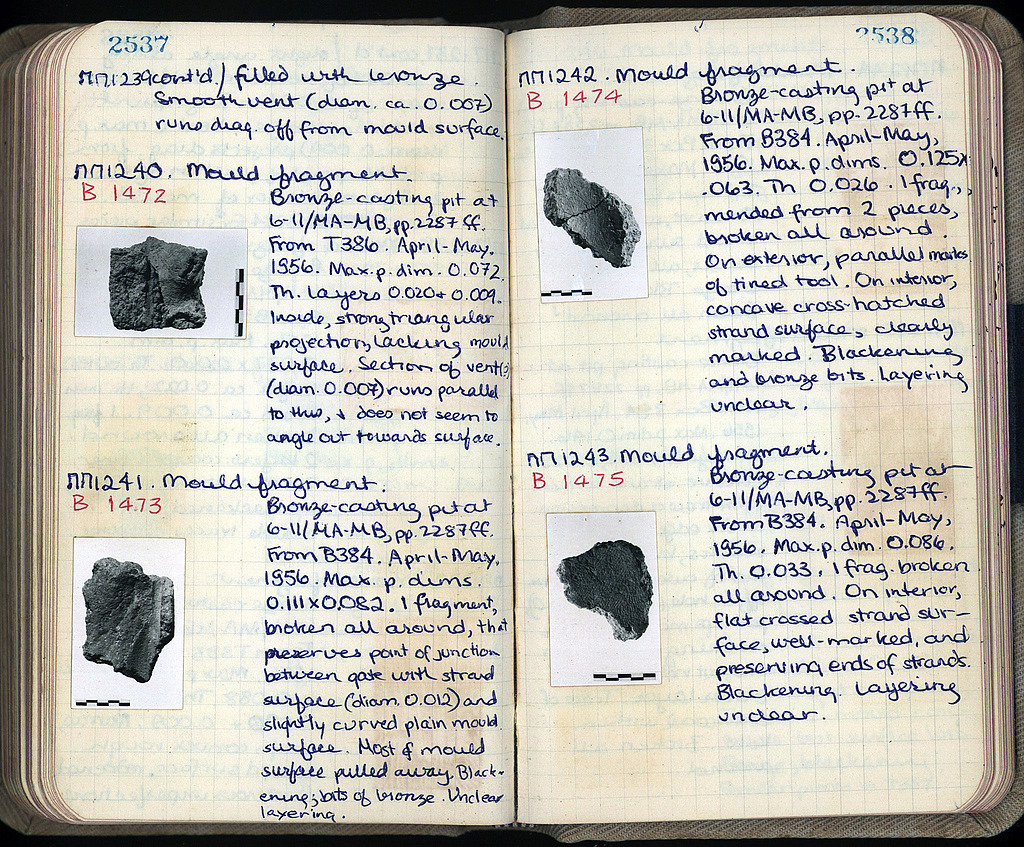 2537
ΠΠ1239cont'd / filled with bronze.
Smooth vent (diam. ca. 0.007)
runs diag. off from mould surface.
ΠΠ1240. Mould fragment.
B 1472
Bronze-casting pit at
6-11/MA-MB, pp. 2287ff.
From T386. April-May,
1956. Max. p. dim. 0.072.
Th. layers 0.020 + 0.009.
Inside, strong triangular
projection, lacking mould
surface. Section of vent(?)
(diam. 0.007) runs parallel
to this, & does not seem to
angle out towards surface.
ΠΠ1241. Mould fragment.
B 1473
Bronze-casting pit at
6-11/MA-MB, pp. 2287ff.
From B384. April-May,
1956. Max. p. dims.
0.111x0.082. 1 fragment,
broken all around, that
preserves point of junction
between gate with strand
surface (diam. 0.012) and
slightly curved plain mould
surface. Most of mould
surface pulled away. Black-
ening; bits of bronze. Unclear
layering.
2538
ΠΠ1242. Mould fragment.
B 1474
Bronze-casting pit at
6-11/MA-MB, pp. 2287ff.
From B384. April-May,
1956. Max. p. dims. 0.125x
.063. Th 0.026. 1 frag.,
mended from 2 pieces,
broken all around.
On exterior, parallel marks
of tined tool. On interior,
concave cross-hatched
strand surface, clearly
marked. Blackening
and bronze bits. Layering
unclear.
ΠΠ1243. Mould fragment.
B 1475
Bronze-casting pit at
6-11/MA-MB, pp. 2287ff.
From B384. April-May,
1956. Max. p. dim. 0.086.
Th. 0.033. 1 frag. broken
all around. On interior,
flat crossed strand sur-
face, well-marked, and
preserving ends of strands.
Blackening. Layering
unclear.